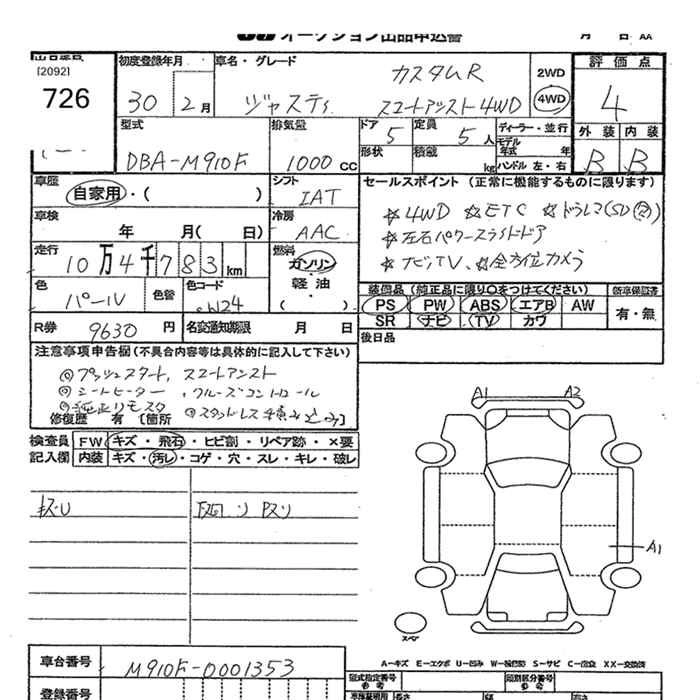 オークション出品申込書
[2092]
726
初度登録年月
30 2月
車名・グレード
カスタムR
ジャスティ スマートアシスト4WD
2WD
4WD
評価点
4
外装 内装
B B
型式
DBA-M910F
排気量
1000cc
ドア
5
定員
5人
ディーラー・並行
形状
積載
kg
モデル年式 年
ハンドル 左・右
車歴
自家用・( )
シフト
IAT
車検
年 月( 日)
冷房
AAC
走行
10万4千783km
燃料
ガソリン
軽油
( )
色
パール
色替
色コード
W24
R券 9630円
名変通知期限 月 日
セールスポイント (正常に機能するものに限ります)
☆4WD ☆ETC
☆左右パワースライドドア
☆ナビ,TV ☆全方位カメラ
装備品(純正品に限り○をつけてください)
PS PW ABS エアB AW
SR ナビ TV カワ
新車保証書
有・無
後日品
注意事項申告欄(不具合内容等は具体的に記入して下さい)
◎プッシュスタート, スマートアシスト
◎シートヒーター ,クルーズコントロール
修復歴 有 [箇所 ]
検査員記入欄
FW キズ・飛石・ヒビ割・リペア跡・×要
内装 キズ・汚レ・コゲ・穴・スレ・キレ・破レ
A1 A2
A1
スペア
A‥キズ E‥エクボ U‥凹み W‥補修跡 S‥サビ C‥腐食 XX‥交換済
車台番号
M910F-0001353
登録番号
型式指定番号
参考
類別区分番号
参考
車庫証明用
長さ
幅
高さ